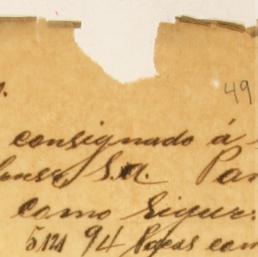 49
consignado á
S.A. Par
como sigue:
5121 94 Pacas con